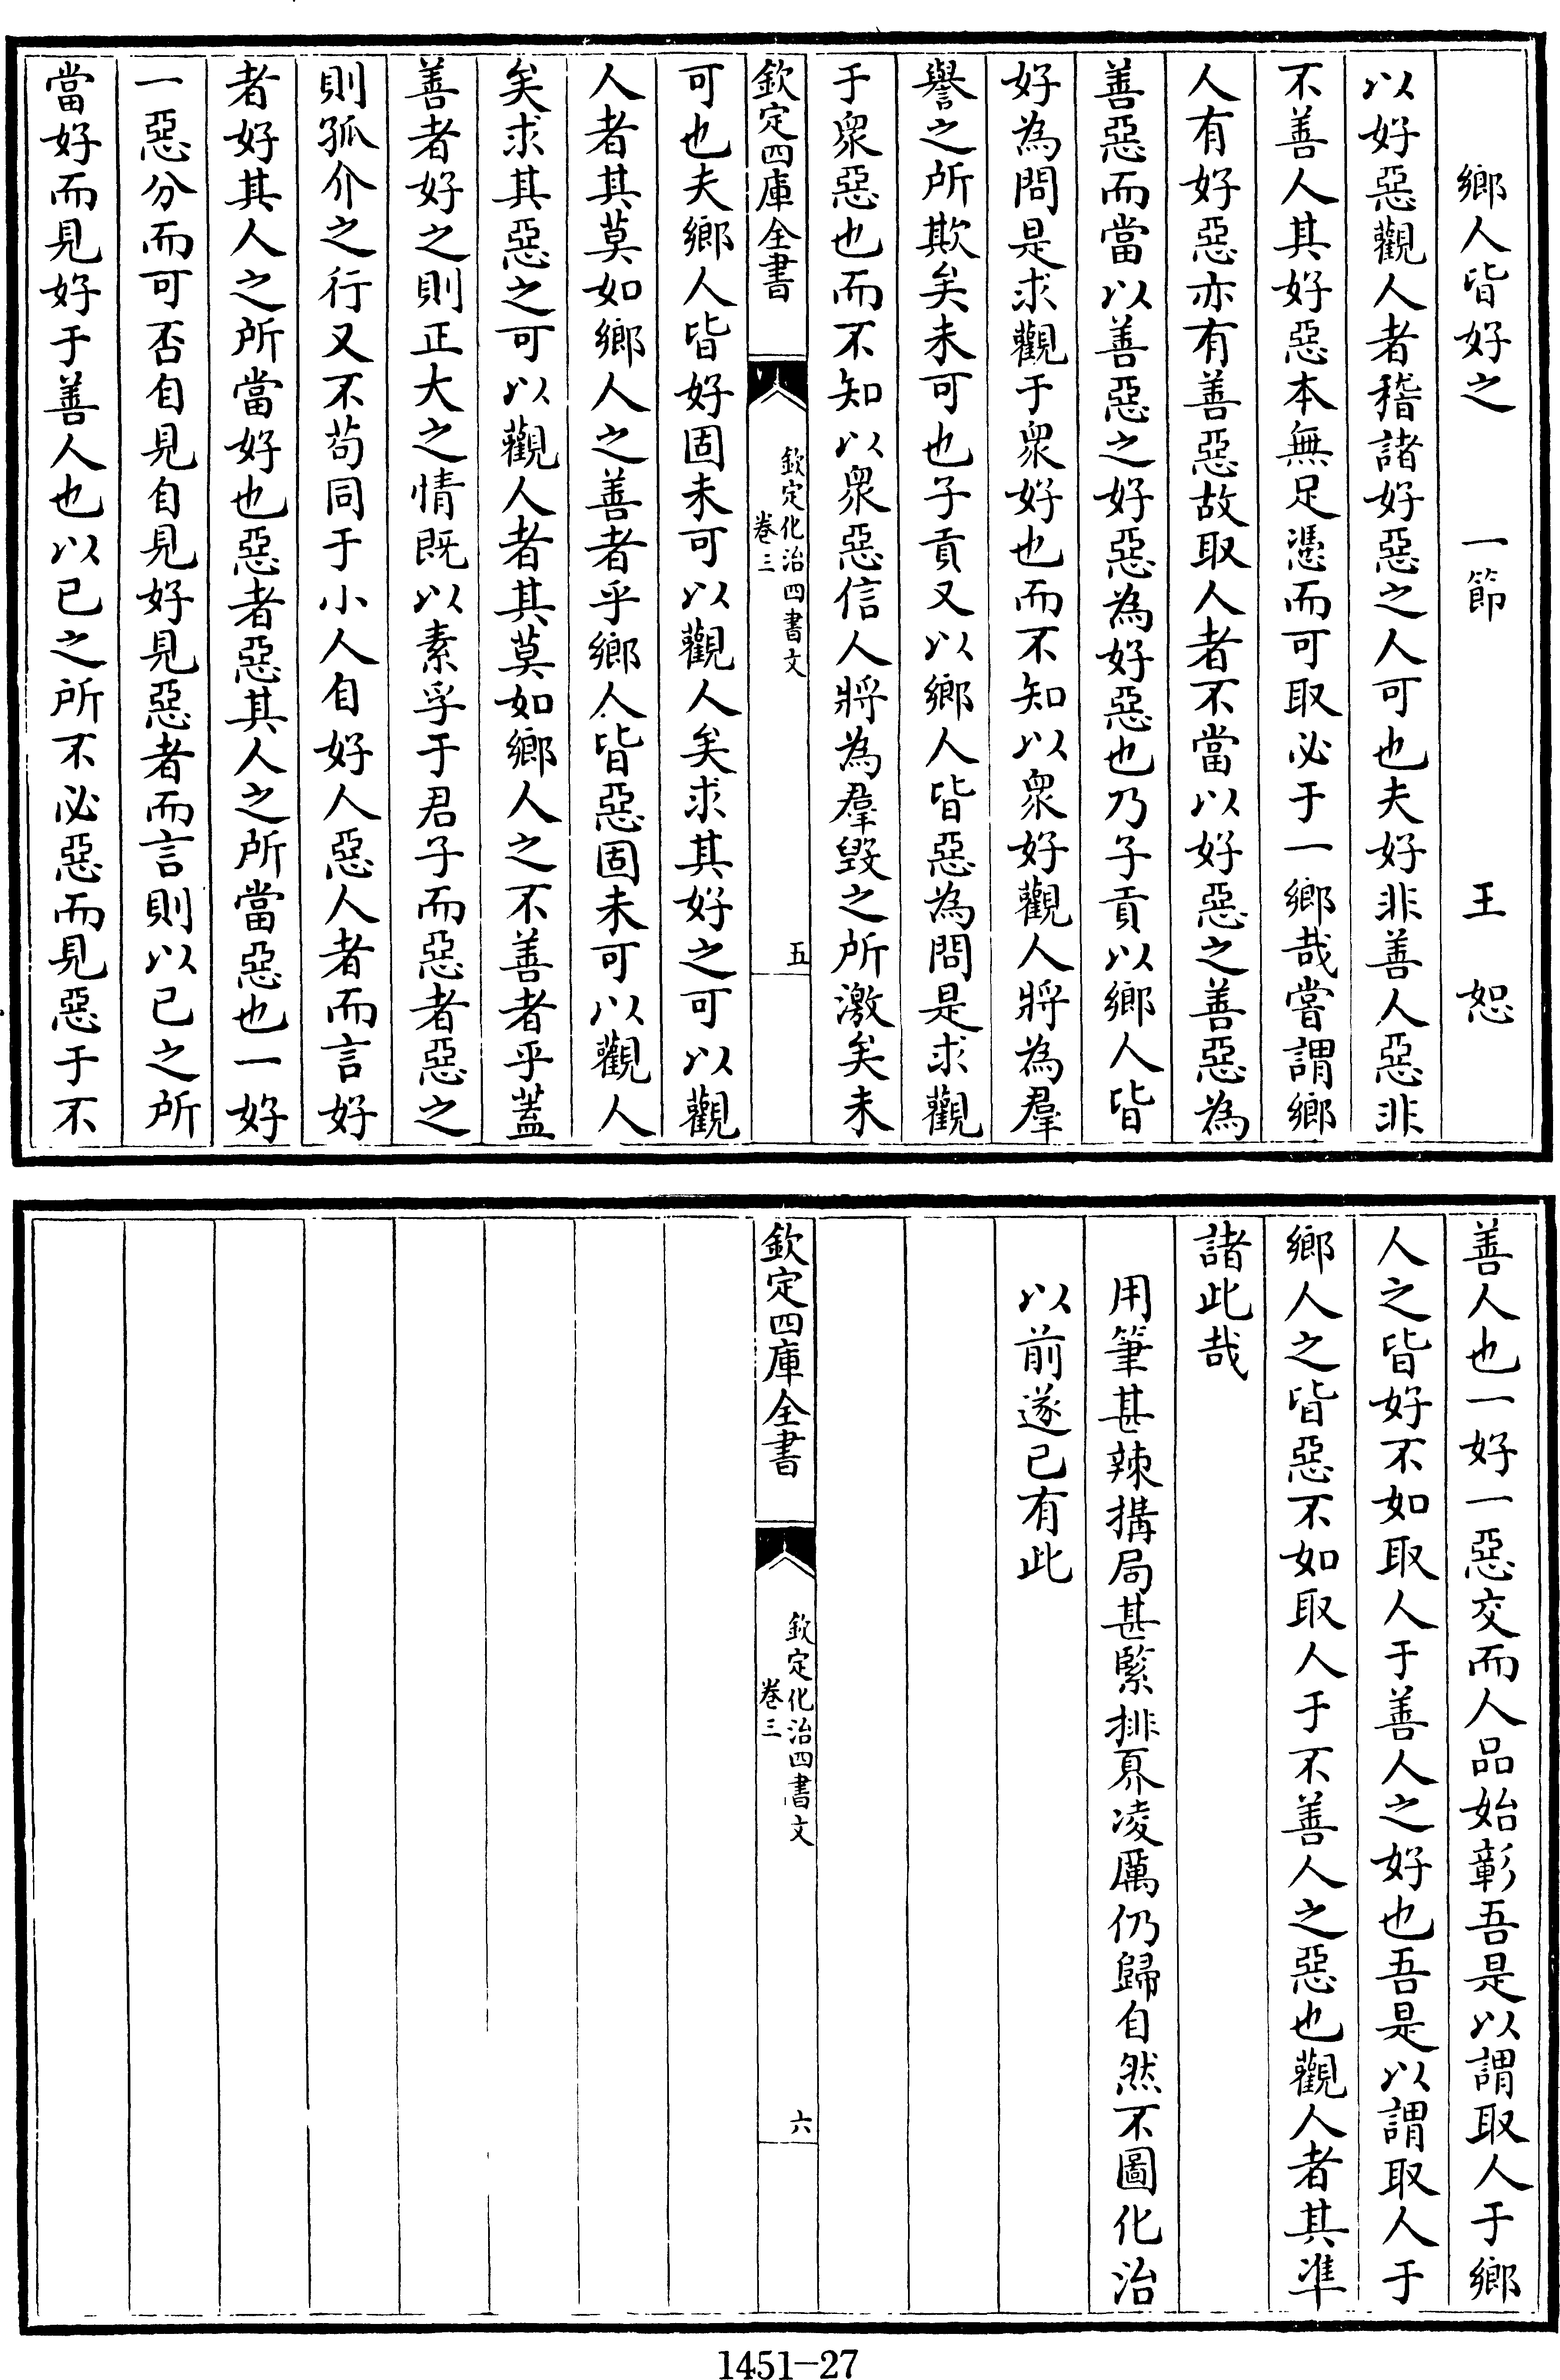 鄉人皆好之　一節　王恕
以好惡觀人者稽諸好惡之人可也夫好非善人惡非
不善人其好惡本無足憑而可取必于一鄉哉嘗謂鄉
人有好惡亦有善惡故取人者不當以好惡之善惡為
善惡而當以善惡之好惡為好惡也乃子貢以鄉人皆
好為問是求觀于衆好也而不知以衆好觀人將為羣
譽之所欺矣未可也子貢又以鄉人皆惡為問是求觀
于衆惡也而不知以衆惡信人將為羣毀之所激矣未
欽定四庫全書
欽定化治四書文
卷三
五
可也夫鄉人皆好固未可以觀人矣求其好之可以觀
人者其莫如鄉人之善者乎鄉人皆惡固未可以觀人
矣求其惡之可以觀人者其莫如鄉人之不善者乎蓋
善者好之則正大之情既以素孚于君子而惡者惡之
則孤介之行又不苟同于小人自好人惡人者而言好
者好其人之所當好也惡者惡其人之所當惡也一好
一惡分而可否自見自見好見惡者而言則以已之所
當好而見好于善人也以已之所不必惡而見惡于不
善人也一好一惡交而人品始彰吾是以謂取人于鄉
人之皆好不如取人于善人之好也吾是以謂取人于
鄉人之皆惡不如取人于不善人之惡也觀人者其準
諸此哉
用筆甚辣搆局甚緊排奡凌厲仍歸自然不圖化治
以前遂已有此
欽定四庫全書
欽定化治四書文
卷三
六
1451-27